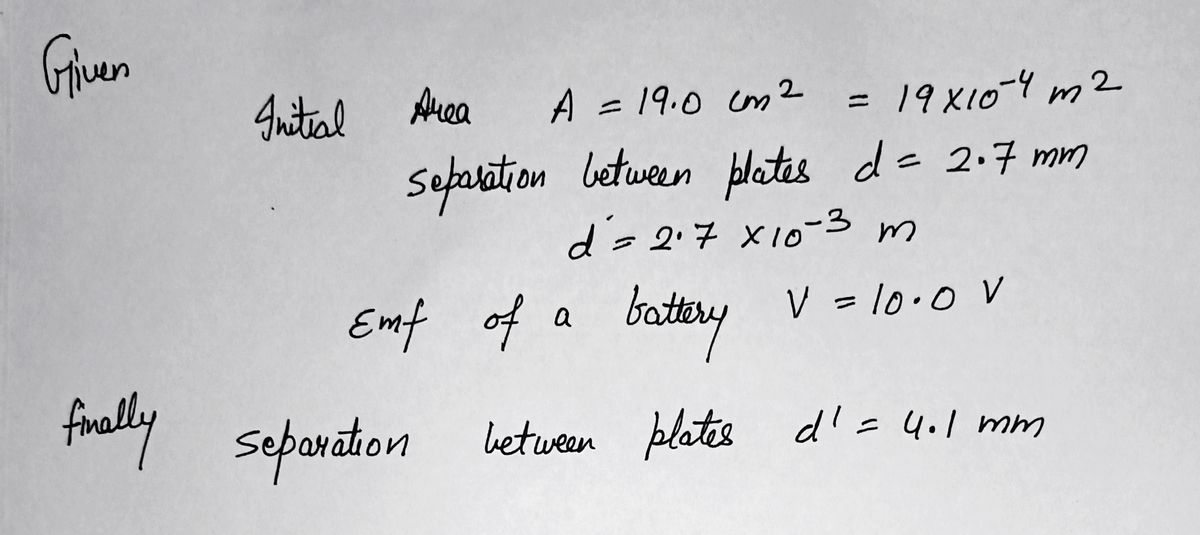 Given
Initial Area A = 19.0 cm² = 19 x10⁻⁴ m²
separation between plates d = 2.7 mm
d = 2.7 x10⁻³ m
Emf of a battery V = 10.0 V
finally separation between plates d' = 4.1 mm